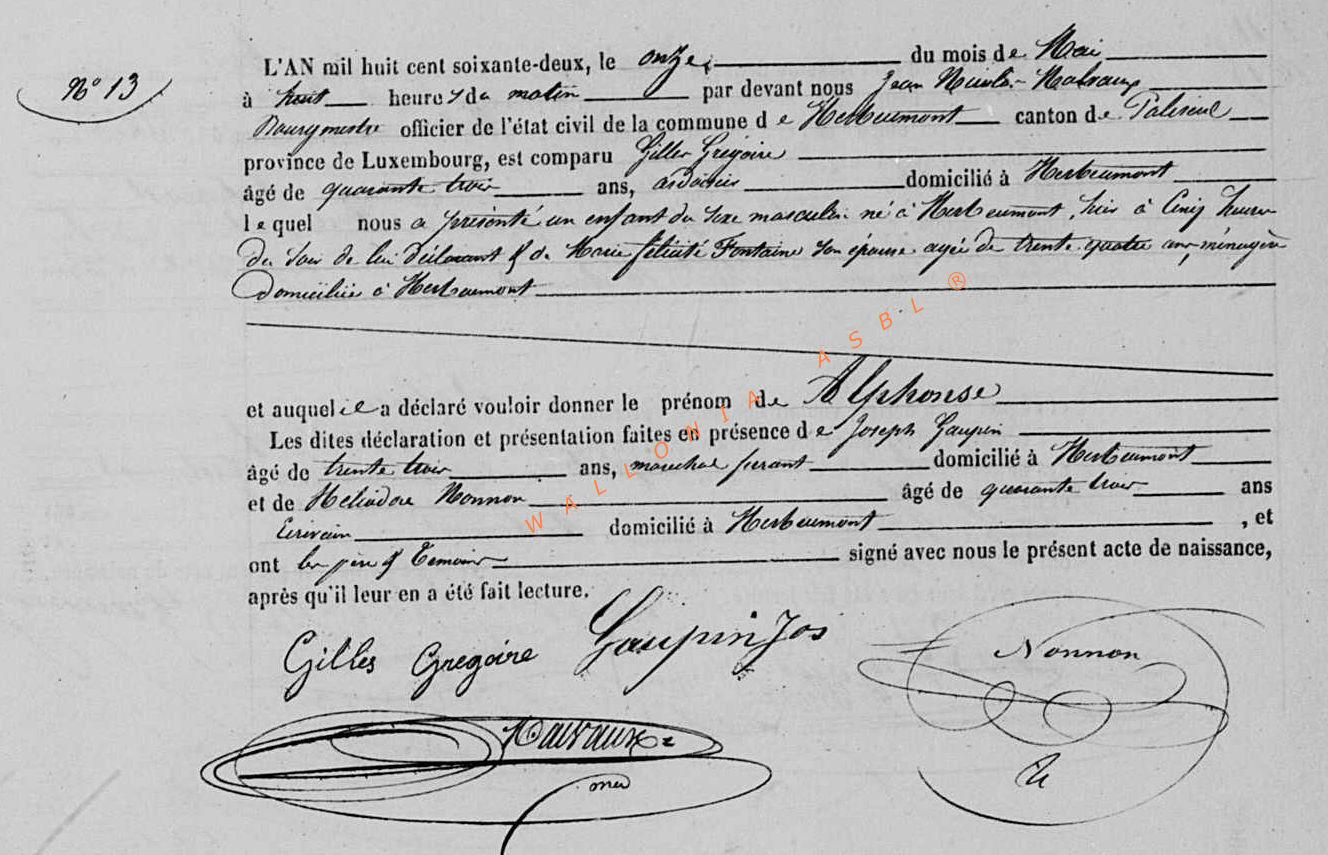 N° 13
L'AN mil huit cent soixante-deux, le onze du mois de Mai
à huit heures du matin par devant nous Jean Nicolas Malvaux
Bourgmestre officier de l'état civil de la commune de Herbeumont canton de Paliseul
province de Luxembourg, est comparu Gilles Gregoire
âgé de quarante trois ans, ardoisier domicilié à Herbeumont
lequel nous a présenté un enfant du sexe masculin né à Herbeumont, hier à Cinq heures
du soir de lui déclarant & de Marie félicité Fontaine son épouse agée de trente quatre ans, ménagère
domiciliée à Herbeumont
et auquel il a déclaré vouloir donner le prénom de Alphonse
Les dites déclaration et présentation faites en présence de Joseph Gaupin
âgé de trente trois ans, marechal ferant domicilié à Herbeumont
et de Heliodore Nonnon âgé de quarante trois ans
Ecrivain domicilié à Herbeumont, et
ont les père & Temoins signé avec nous le présent acte de naissance,
après qu'il leur en a été fait lecture.
Gilles Gregoire Gaupin Jos Nonnon
Malvaux
WALLONIA ASBL ®